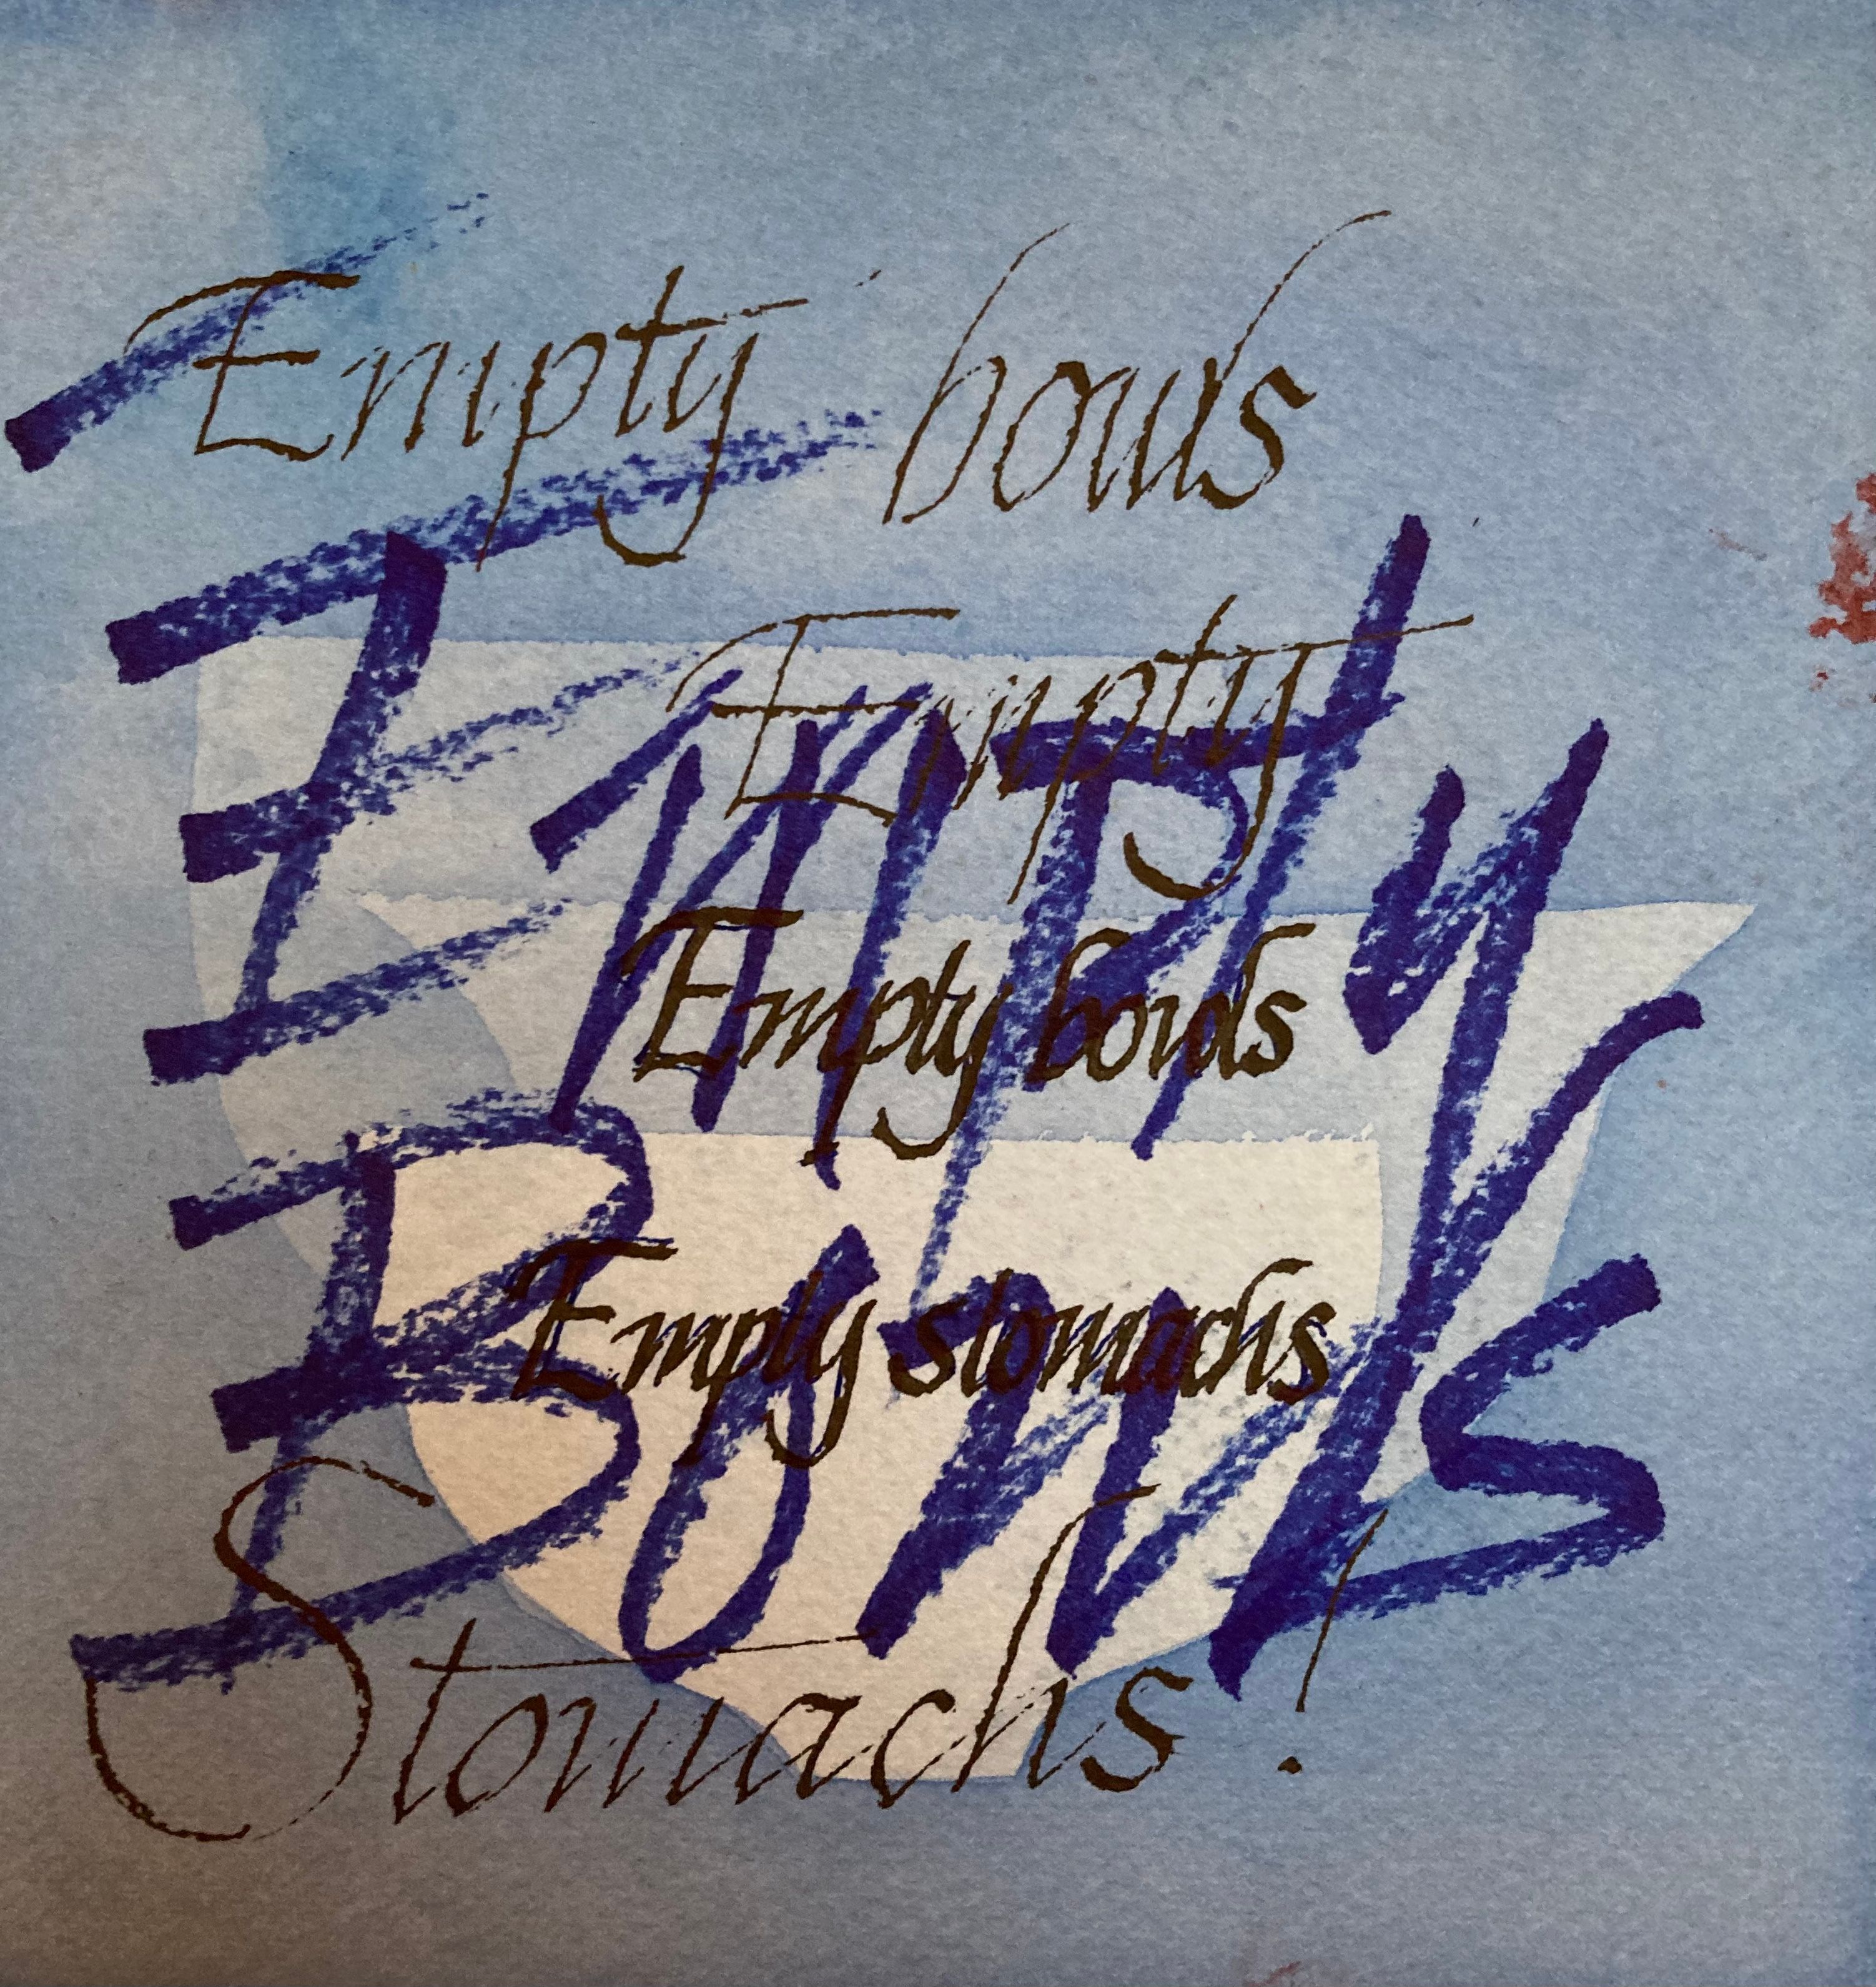 Empty bowls
Empty
EMPty
Empty bowls
BOWLS
Empty stomachs
Stomachs!